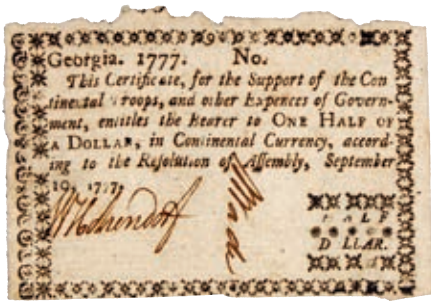 Georgia. 1777. No.
This Certificate, for the Support of the Con
tinental Troops, and other Expences of Govern-
ment, entitles the Bearer to ONE HALF OF
A DOLLAR, in Continental Currency, accord-
ing to the Resolution of Assembly, September
10, 1777.
HALF
DOLLAR.